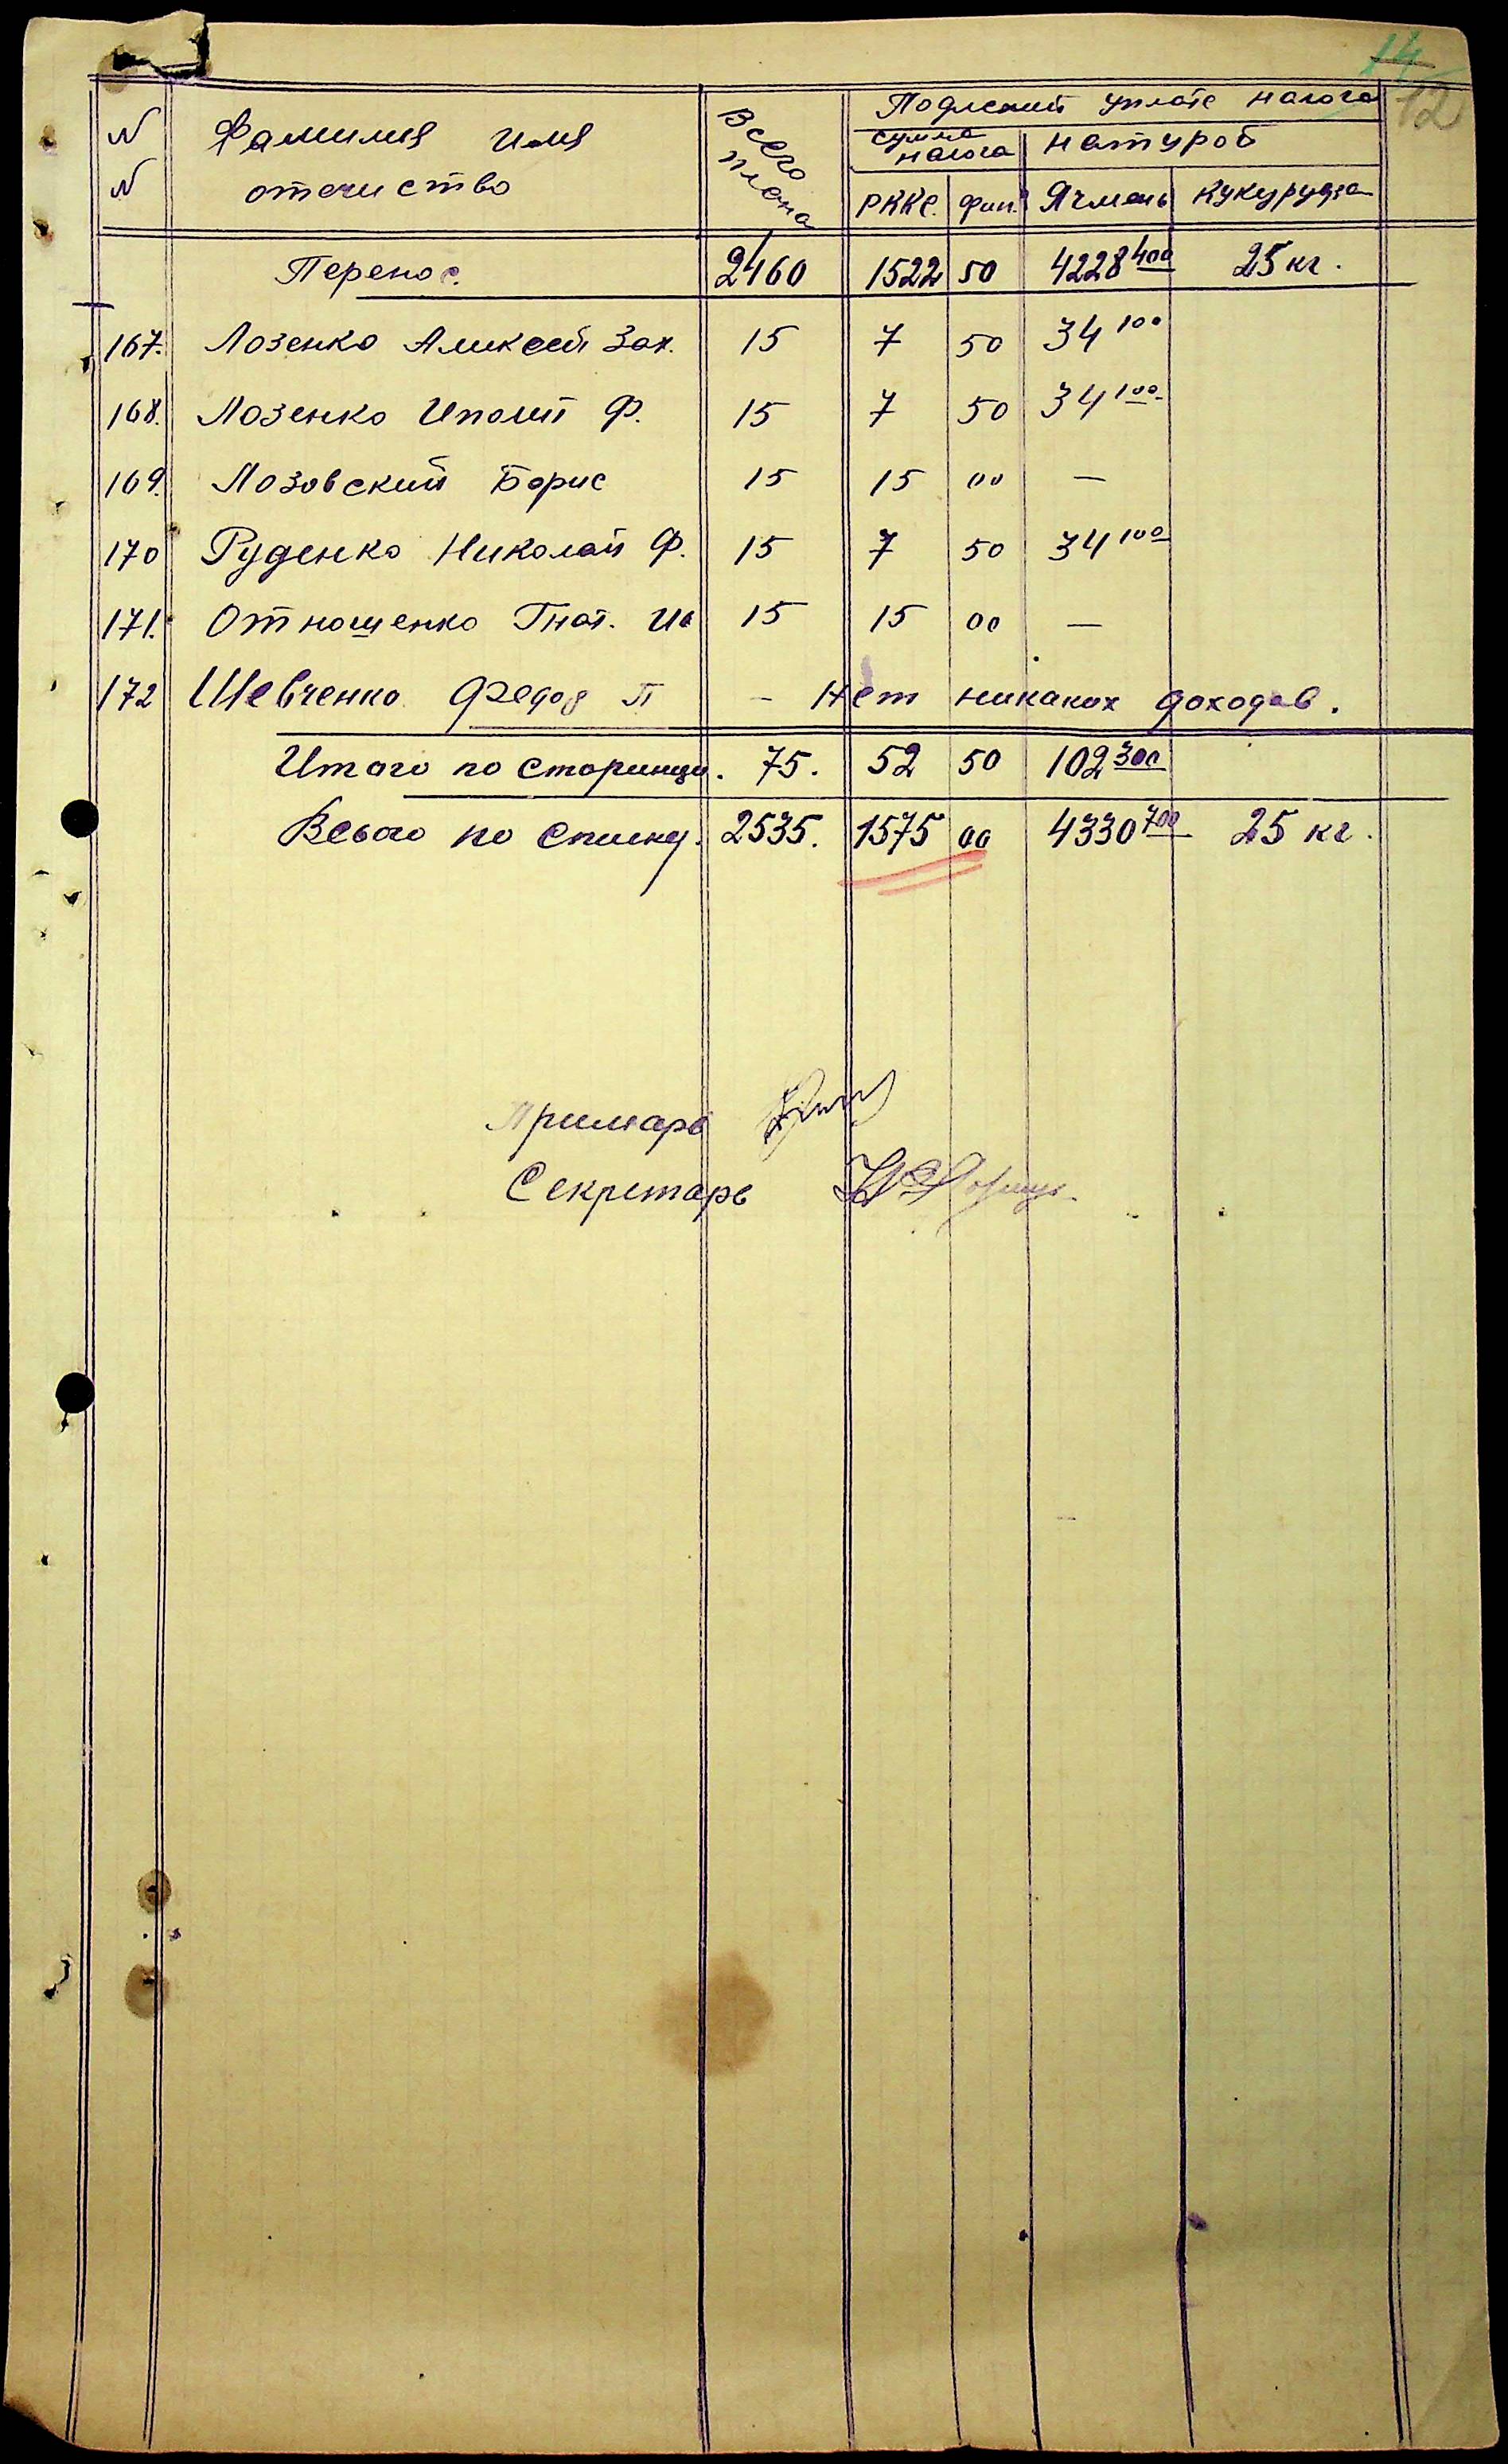 14
12
N N Фамилия имя отечиство Всего плана Подлежит уплате налога
сумма налога натуроб
РККС. фин. Ячмень Кукурудза
Перенос. 2460 1522 50 4228 400 25 кг.
167. Лозенко Аликсей Зах. 15 7 50 34 100
168. Лозенко Иполит Ф. 15 7 50 34 100
169. Лозовский Борис 15 15 00 —
170 Руденко Николай Ф. 15 7 50 34 100
171. Отношенко Гнат. Ив 15 15 00 —
172 Шевченко Федор П – Нет никаких доходов.
Итого по сторинци. 75. 52 50 102 300
Всього по списку. 2535. 1575 00 4330 700 25 кг.
Примарь
Секретарь